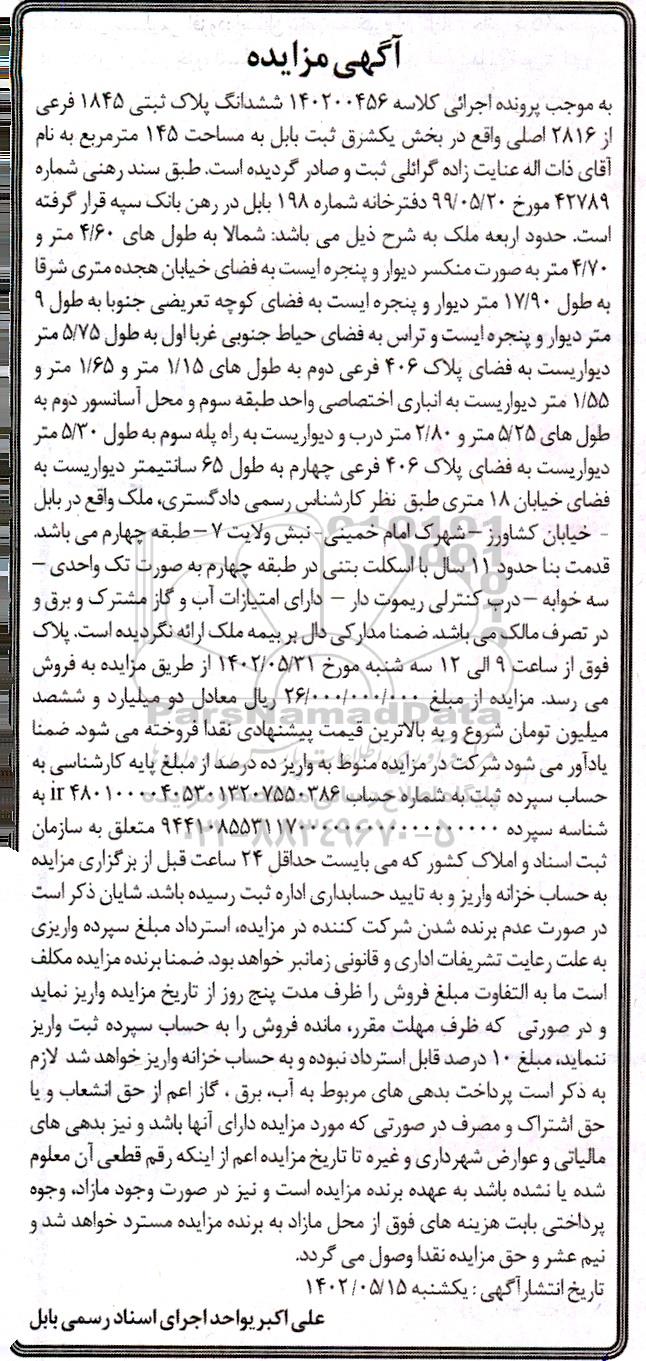 آگهی مزایده
به موجب پرونده اجرائی کلاسه ۱۴۰۲۰۰۴۵۶ ششدانگ پلاک ثبتی ۱۸۴۵ فرعی
از ۲۸۱۶ اصلی واقع در بخش یکشرق ثبت بابل به مساحت ۱۴۵ مترمربع به نام
آقای ذات اله عنایت زاده گرائلی ثبت و صادر گردیده است. طبق سند رهنی شماره
۴۲۷۸۹ مورخ ۹۹/۰۵/۲۰ دفترخانه شماره ۱۹۸ بابل در رهن بانک سپه قرار گرفته
است. حدود اربعه ملک به شرح ذیل می باشد: شمالا به طول های ۴/۶۰ متر و
۴/۷۰ متر به صورت منکسر دیوار و پنجره ایست به فضای خیابان هجده متری شرقا
به طول ۱۷/۹۰ متر دیوار و پنجره ایست به فضای کوچه تعریضی جنوبا به طول ۹
متر دیوار و پنجره ایست و تراس به فضای حیاط جنوبی غربا اول به طول ۵/۷۵ متر
دیواریست به فضای پلاک ۴۰۶ فرعی دوم به طول های ۱/۱۵ متر و ۱/۶۵ متر و
۱/۵۵ متر دیواریست به انباری اختصاصی واحد طبقه سوم و محل آسانسور دوم به
طول های ۵/۲۵ متر و ۲/۸۰ متر درب و دیواریست به راه پله سوم به طول ۵/۳۰ متر
دیواریست به فضای پلاک ۴۰۶ فرعی چهارم به طول ۶۵ سانتیمتر دیواریست به
فضای خیابان ۱۸ متری طبق نظر کارشناس رسمی دادگستری، ملک واقع در بابل
- خیابان کشاورز – شهرک امام خمینی- نبش ولایت ۷ – طبقه چهارم می باشد.
قدمت بنا حدود ۱۱ سال با اسکلت بتنی در طبقه چهارم به صورت تک واحدی –
سه خوابه – درب کنترلی ریموت دار – دارای امتیازات آب و گاز مشترک و برق و
در تصرف مالک می باشد. ضمنا مدارکی دال بر بیمه ملک ارائه نگردیده است. پلاک
فوق از ساعت ۹ الی ۱۲ سه شنبه مورخ ۱۴۰۲/۰۵/۳۱ از طریق مزایده به فروش
می رسد. مزایده از مبلغ ۲۶/۰۰۰/۰۰۰/۰۰۰ ریال معادل دو میلیارد و ششصد
میلیون تومان شروع و به بالاترین قیمت پیشنهادی نقدا فروخته می شود. ضمنا
یادآور می شود شرکت در مزایده منوط به واریز ده درصد از مبلغ پایه کارشناسی به
حساب سپرده ثبت به شماره حساب ir ۴۸۰۱۰۰۰۰۴۰۵۳۰۱۳۲۰۷۵۵۰۳۸۶ به
شناسه سپرده ۹۴۴۱۰۸۵۵۳۱۱۷۰۰۰۰۰۰۰۰۰۰۰۰۰۰۰۰۰۰ متعلق به سازمان
ثبت اسناد و املاک کشور که می بایست حداقل ۲۴ ساعت قبل از برگزاری مزایده
به حساب خزانه واریز و به تایید حسابداری اداره ثبت رسیده باشد. شایان ذکر است
در صورت عدم برنده شدن شرکت کننده در مزایده، استرداد مبلغ سپرده واریزی
به علت رعایت تشریفات اداری و قانونی زمانبر خواهد بود. ضمنا برنده مزایده مکلف
است ما به التفاوت مبلغ فروش را ظرف مدت پنج روز از تاریخ مزایده واریز نماید
و در صورتی که ظرف مهلت مقرر، مانده فروش را به حساب سپرده ثبت واریز
ننماید، مبلغ ۱۰ درصد قابل استرداد نبوده و به حساب خزانه واریز خواهد شد لازم
به ذکر است پرداخت بدهی های مربوط به آب، برق ، گاز اعم از حق انشعاب و یا
حق اشتراک و مصرف در صورتی که مورد مزایده دارای آنها باشد و نیز بدهی های
مالیاتی و عوارض شهرداری و غیره تا تاریخ مزایده اعم از اینکه رقم قطعی آن معلوم
شده یا نشده باشد به عهده برنده مزایده است و نیز در صورت وجود مازاد، وجوه
پرداختی بابت هزینه های فوق از محل مازاد به برنده مزایده مسترد خواهد شد و
نیم عشر و حق مزایده نقدا وصول می گردد.
تاریخ انتشارآگهی : یکشنبه ۱۴۰۲/۰۵/۱۵
علی اکبر یواحد اجرای اسناد رسمی بابل
ParsNamadData
۰۲۱-۸۸۳۴۹۶۷۰-۵